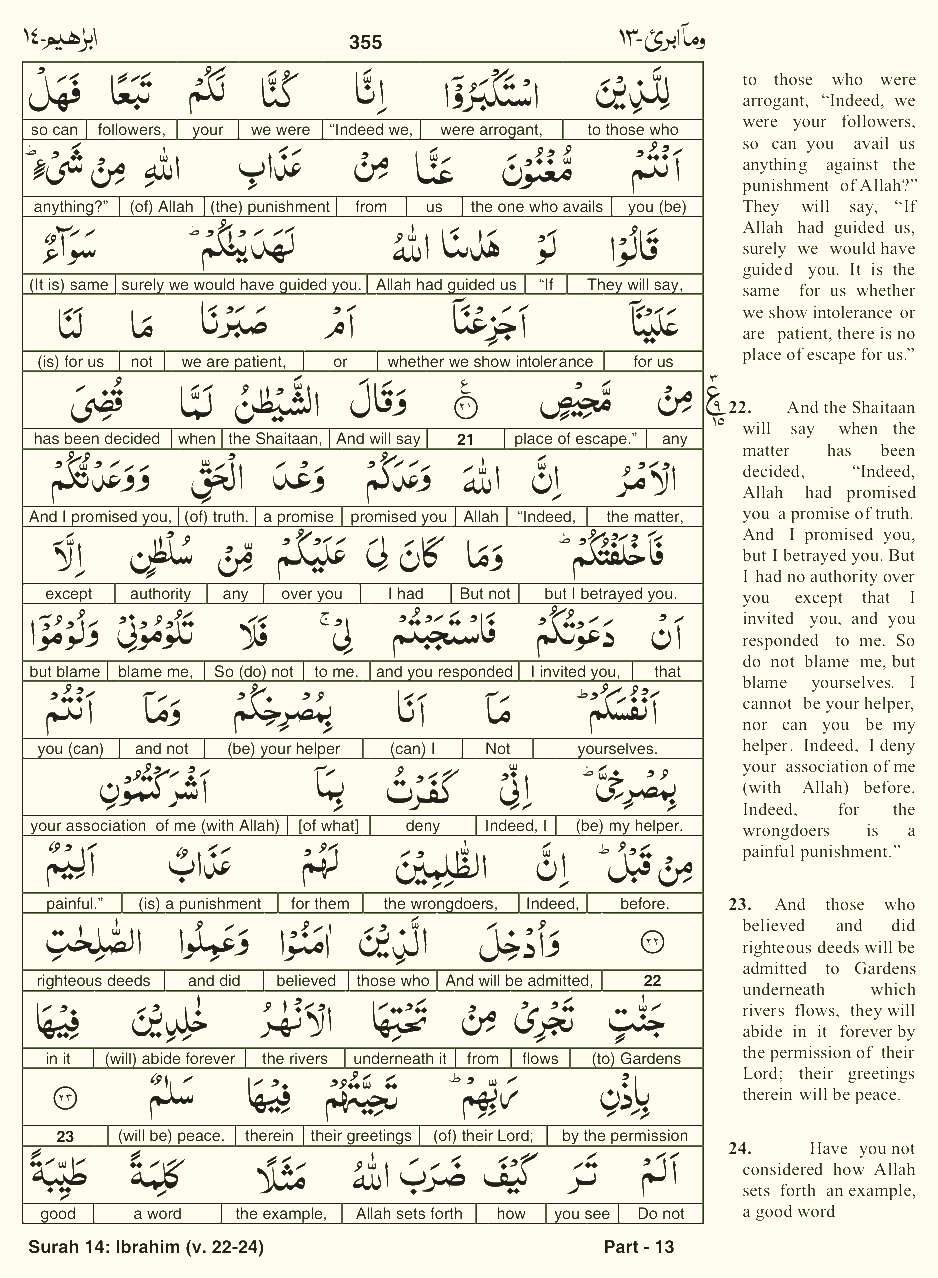 وما ابرئ-١٣ 355 ابرٰهيم-١٤
لِلَّذِيۡنَ اسۡتَكۡبَرُوۡۤا اِنَّا كُنَّا لَكُمۡ تَبَعًا فَهَلۡ
so can followers, your we were “Indeed we, were arrogant, to those who
اَنۡتُمۡ مُّغۡنُوۡنَ عَنَّا مِنۡ عَذَابِ اللّٰهِ مِنۡ شَىۡءٍؕ
anything?” (of) Allah (the) punishment from us the one who avails you (be)
قَالُوۡا لَوۡ هَدٰٮنَا اللّٰهُ لَهَدَيۡنٰكُمۡؕ سَوَآءٌ
(It is) same surely we would have guided you. Allah had guided us “If They will say,
عَلَيۡنَاۤ اَجَزِعۡنَاۤ اَمۡ صَبَرۡنَا مَا لَنَا
(is) for us not we are patient, or whether we show intolerance for us
مِنۡ مَّحِيۡصٍ ٢١ ع وَقَالَ الشَّيۡطٰنُ لَمَّا قُضِىَ
has been decided when the Shaitaan, And will say 21 place of escape.” any
الۡاَمۡرُ اِنَّ اللّٰهَ وَعَدَكُمۡ وَعۡدَ الۡحَـقِّ وَوَعَدْتُّكُمۡ
And I promised you, (of) truth. a promise promised you Allah “Indeed, the matter,
فَاَخۡلَفۡتُكُمۡؕ وَمَا كَانَ لِىَ عَلَيۡكُمۡ مِّنۡ سُلۡطٰنٍ اِلَّاۤ
except authority any over you I had But not but I betrayed you.
اَنۡ دَعَوۡتُكُمۡ فَاسۡتَجَبۡتُمۡ لِىۡۚ فَلَا تَلُوۡمُوۡنِىۡ وَلُوۡمُوۡۤا
but blame blame me, So (do) not to me. and you responded I invited you, that
اَنۡفُسَكُمۡؕ مَاۤ اَنَا بِمُصۡرِخِكُمۡ وَمَاۤ اَنۡتُمۡ
you (can) and not (be) your helper (can) I Not yourselves.
بِمُصۡرِخِىَّؕ اِنِّىۡ كَفَرۡتُ بِمَاۤ اَشۡرَكۡتُمُوۡنِ
your association of me (with Allah) [of what] deny Indeed, I (be) my helper.
مِنۡ قَبۡلُؕ اِنَّ الظّٰلِمِيۡنَ لَهُمۡ عَذَابٌ اَلِيۡمٌ
painful.” (is) a punishment for them the wrongdoers, Indeed, before.
٢٢ وَاُدۡخِلَ الَّذِيۡنَ اٰمَنُوۡا وَعَمِلُوا الصّٰلِحٰتِ
righteous deeds and did believed those who And will be admitted, 22
جَنّٰتٍ تَجۡرِىۡ مِنۡ تَحۡتِهَا الۡاَنۡهٰرُ خٰلِدِيۡنَ فِيۡهَا
in it (will) abide forever the rivers underneath it from flows (to) Gardens
بِاِذۡنِ رَبِّهِمۡؕ تَحِيَّتُهُمۡ فِيۡهَا سَلٰمٌ ٢٣
23 (will be) peace. therein their greetings (of) their Lord; by the permission
اَلَمۡ تَرَ كَيۡفَ ضَرَبَ اللّٰهُ مَثَلًا كَلِمَةً طَيِّبَةً
good a word the example, Allah sets forth how you see Do not
٣
ع ٩
١٥
to those who were
arrogant, “Indeed, we
were your followers,
so can you avail us
anything against the
punishment of Allah?”
They will say, “If
Allah had guided us,
surely we would have
guided you. It is the
same for us whether
we show intolerance or
are patient, there is no
place of escape for us.”
22. And the Shaitaan
will say when the
matter has been
decided, “Indeed,
Allah had promised
you a promise of truth.
And I promised you,
but I betrayed you. But
I had no authority over
you except that I
invited you, and you
responded to me. So
do not blame me, but
blame yourselves. I
cannot be your helper,
nor can you be my
helper. Indeed, I deny
your association of me
(with Allah) before.
Indeed, for the
wrongdoers is a
painful punishment.”
23. And those who
believed and did
righteous deeds will be
admitted to Gardens
underneath which
rivers flows, they will
abide in it forever by
the permission of their
Lord; their greetings
therein will be peace.
24. Have you not
considered how Allah
sets forth an example,
a good word
Surah 14: Ibrahim (v. 22-24) Part - 13